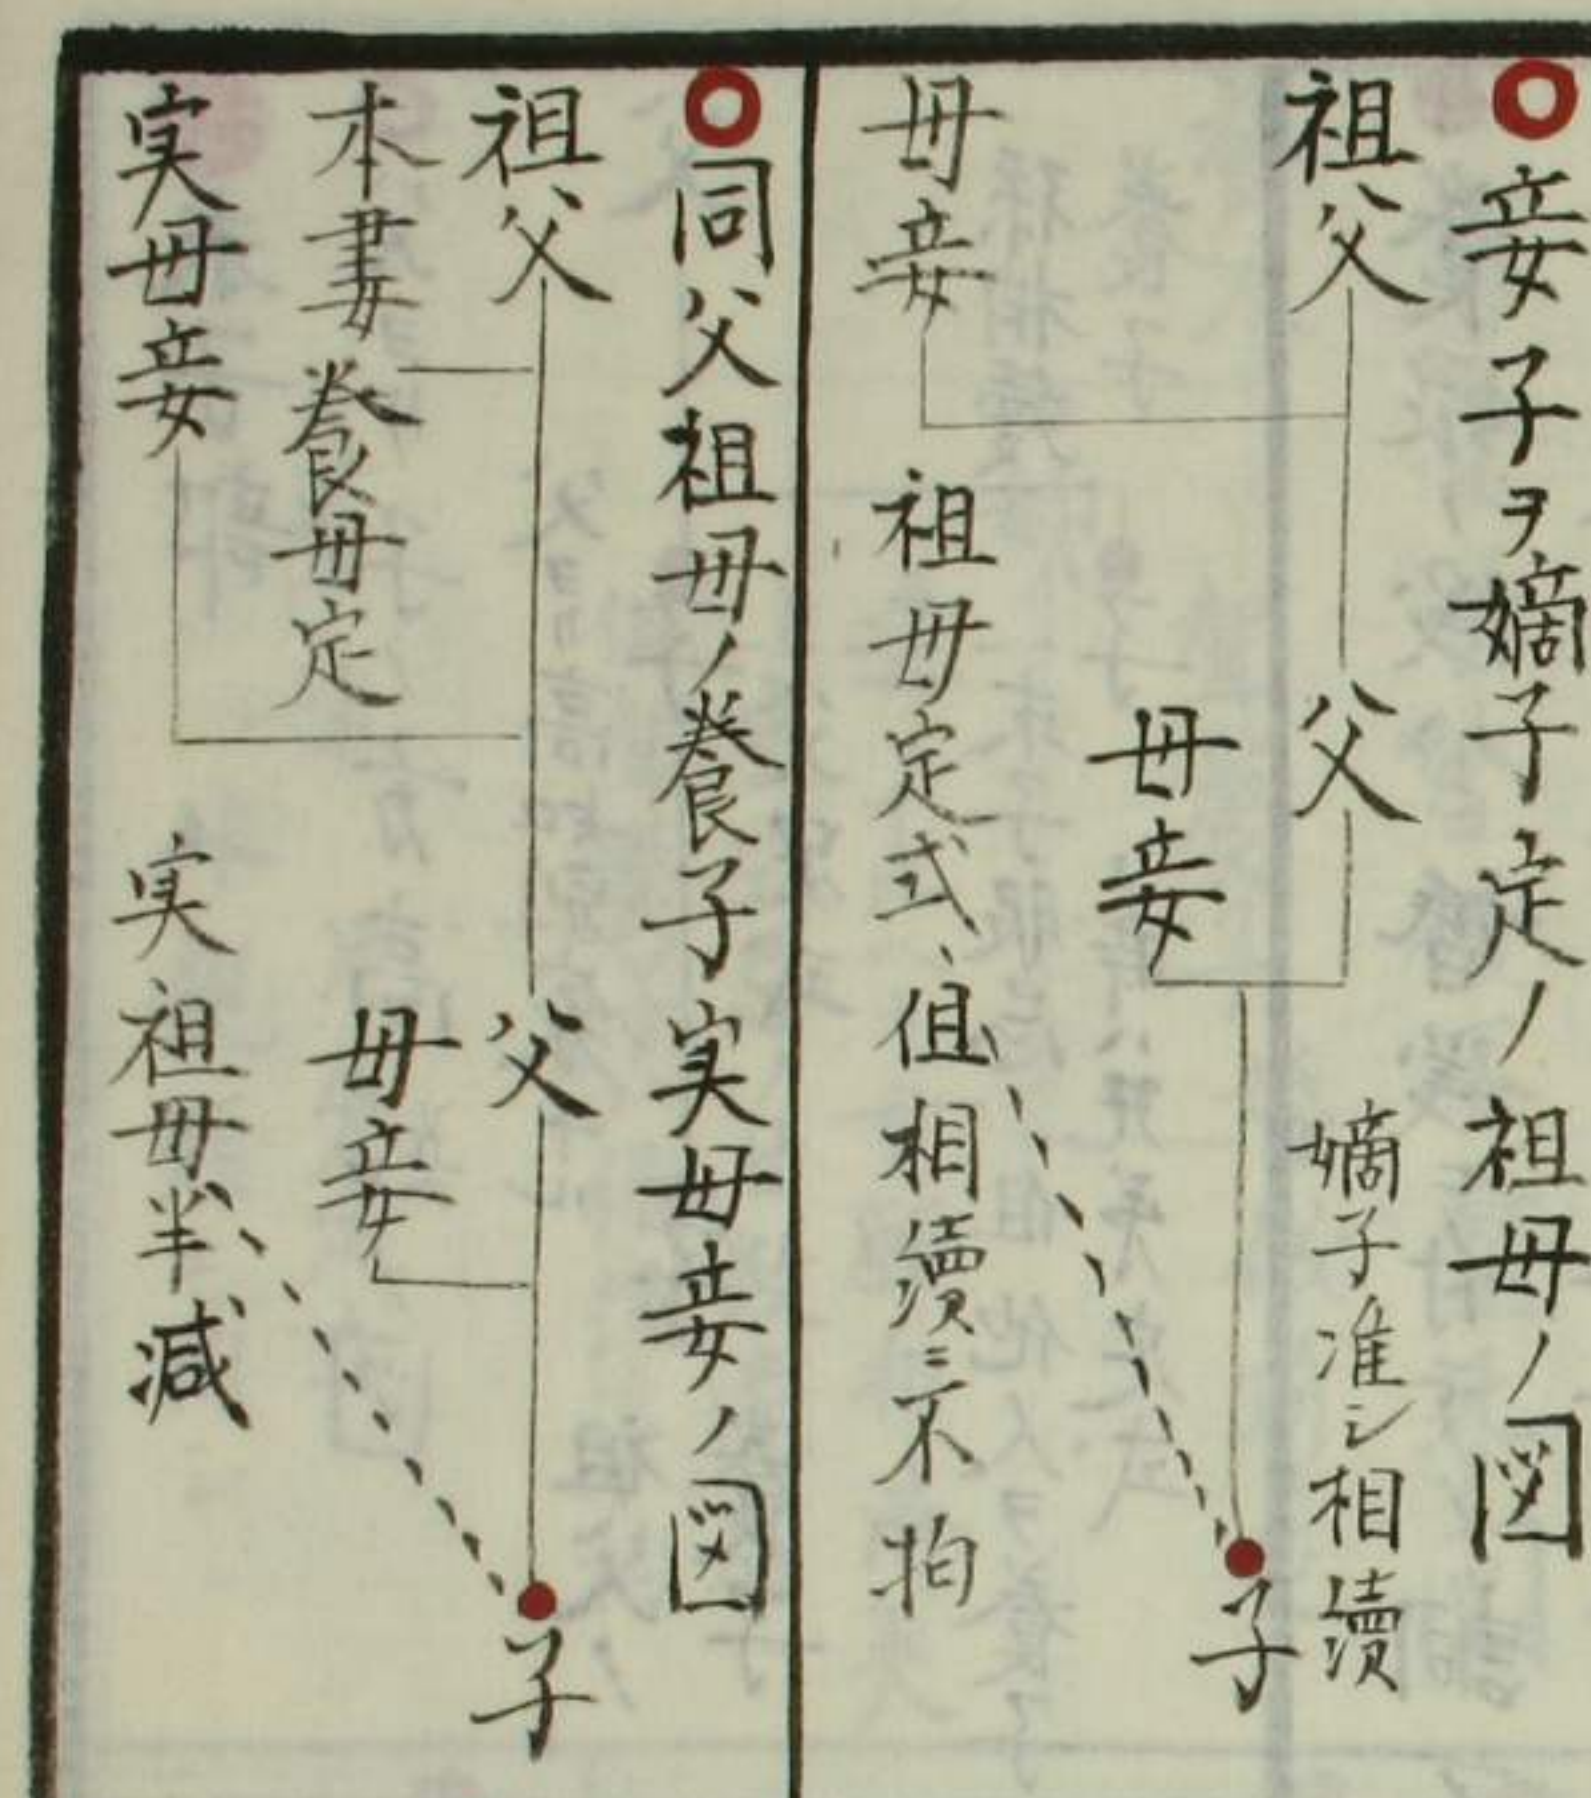 ○妾子ヲ嫡子定ノ祖母ノ図
祖父
父
嫡子准シ相續
母妾
子
母妾
祖母定式、但相續ニ不拘
○同父祖母ノ養子実母妾ノ図
祖父
父
子
本妻
養母定
母妾
実母妾
実祖母半減